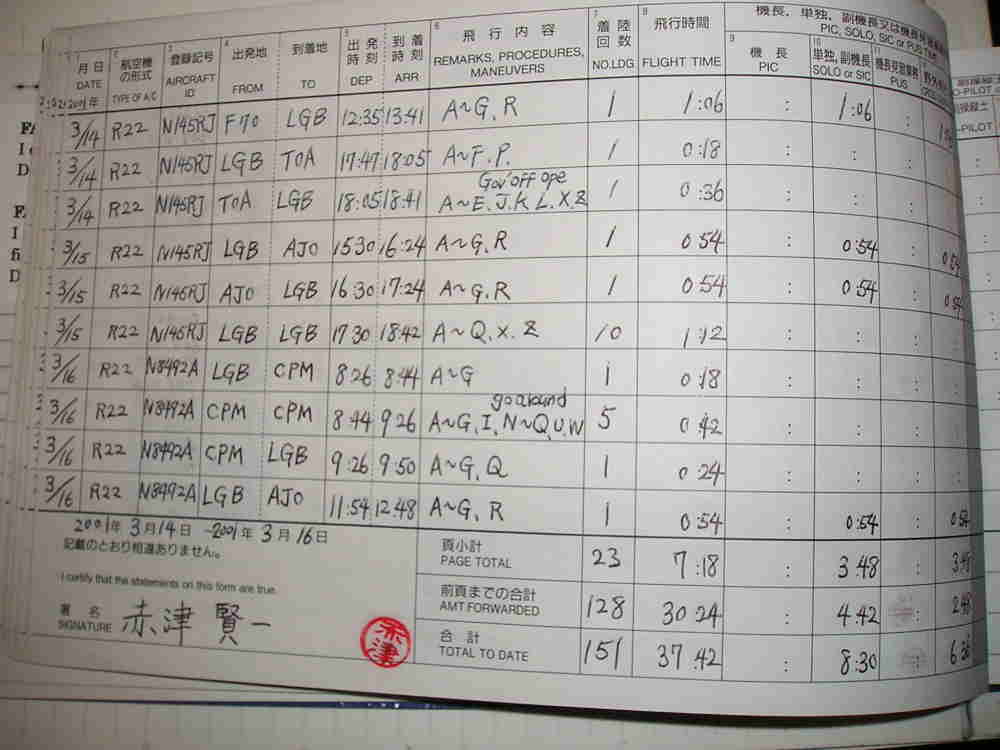 機長, 単独, 副機長又は機長
PIC, SOLO, SIC or PUS TIME
1 月日 DATE 2 航空機の形式 TYPE OF A/C 3 登録記号 AIRCRAFT ID 4 出発地 FROM 到着地 TO 5 出発時刻 DEP 到着時刻 ARR 6 飛行内容 REMARKS, PROCEDURES, MANEUVERS 7 着陸回数 NO.LDG 8 飛行時間 FLIGHT TIME 9 機長 PIC 10 単独, 副機長 SOLO or SIC 11 PUS
3/14 R22 N145RJ F70 LGB 12:35 13:41 A~G, R 1 1:06 : 1:06 :
3/14 R22 N145RJ LGB TOA 17:47 18:05 A~F. P. 1 0:18 : : :
Gov' off ope
3/14 R22 N145RJ TOA LGB 18:05 18:41 A~E. J. K. L. X. Z 1 0:36 : : :
3/15 R22 N145RJ LGB AJO 15 30 16:24 A~G, R 1 0:54 : 0:54 : 0:54
3/15 R22 N145RJ AJO LGB 16:30 17:24 A~G, R 1 0:54 : 0:54 : 0:54
3/15 R22 N145RJ LGB LGB 17 30 18:42 A~Q. X. Z 10 1:12 : : :
3/16 R22 N8492A LGB CPM 8 26 8:44 A~G 1 0:18 : : :
go around
3/16 R22 N8492A CPM CPM 8:44 9 26 A~G, I, N~Q, U, W 5 0:42 : : :
3/16 R22 N8492A CPM LGB 9:26 9:50 A~G, Q 1 0:24 : : :
3/16 R22 N8492A LGB AJO 11:54 12:48 A~G, R 1 0:54 : 0:54 : 0:54
2001年 3月14日 ~2001年 3月16日
記載のとおり相違ありません。
I certify that the statements on this form are true.
署名
SIGNATURE 赤津 賢一
赤津
頁小計
PAGE TOTAL 23 7:18 : 3:48 : 3:48
前頁までの合計
AMT FORWARDED 128 30 24 : 4:42 : 2:48
合計
TOTAL TO DATE 151 37:42 : 8:30 : 6 36